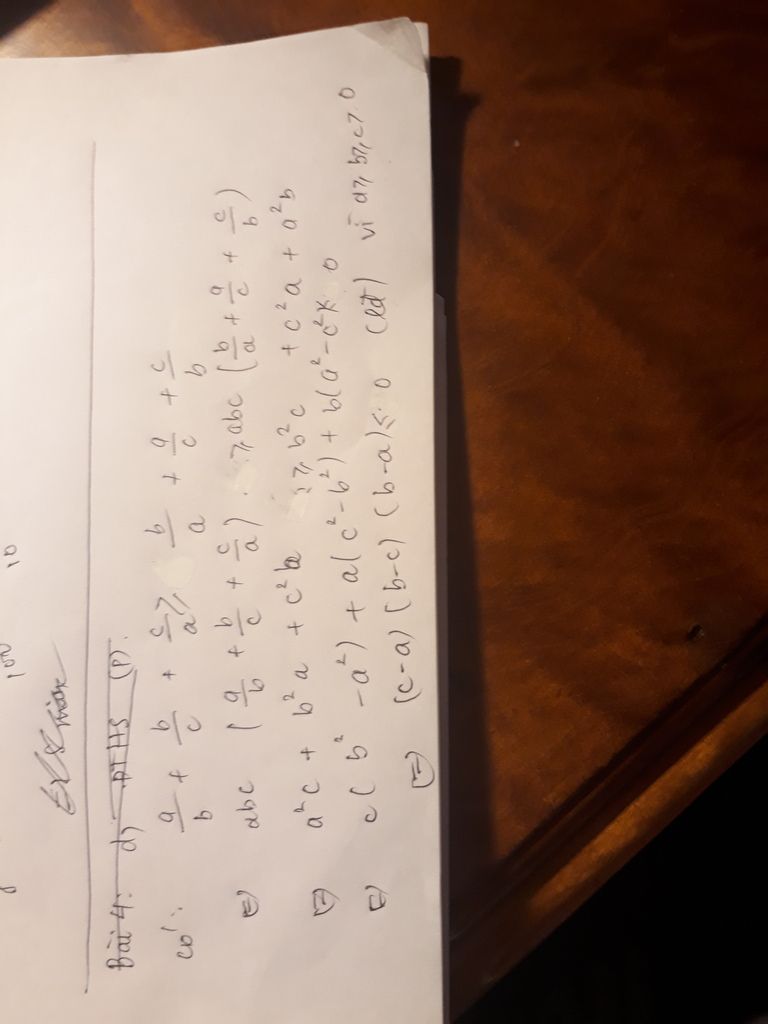 100 10
Bài 4: d) PTHS (P).
có: a/b + b/c + c/a ≥ b/a + a/c + c/b
⇔ abc (a/b + b/c + c/a) ≥ abc (b/a + a/c + c/b)
⇔ a²c + b²a + c²b ≥ b²c + c²a + a²b
⇔ c(b² - a²) + a(c² - b²) + b(a² - c²) ≤ 0
⇔ (c-a) (b-c) (b-a) ≤ 0 (lđ) vì a ≥ b ≥ c > 0